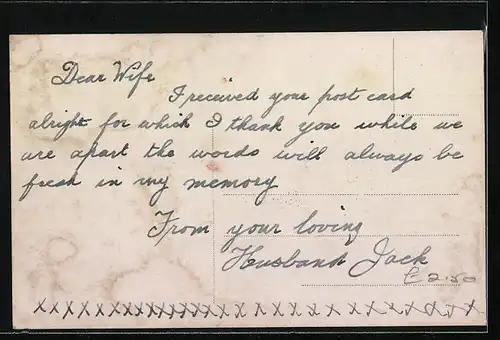 Dear Wife
I received your post card
alright for which I thank you while we
are apart the words will always be
fresh in my memory
From your loving
Husband Jack
£2.50
xxxxxxxxxxxxxxxxxxxxxxxxxxxxx